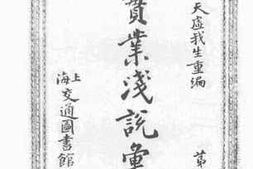 天虛我生重編
第
實業淺說彙
上海
交通圖書館